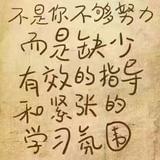 不是你不够努力
而是缺少
有效的指导
和紧张的
学习氛围